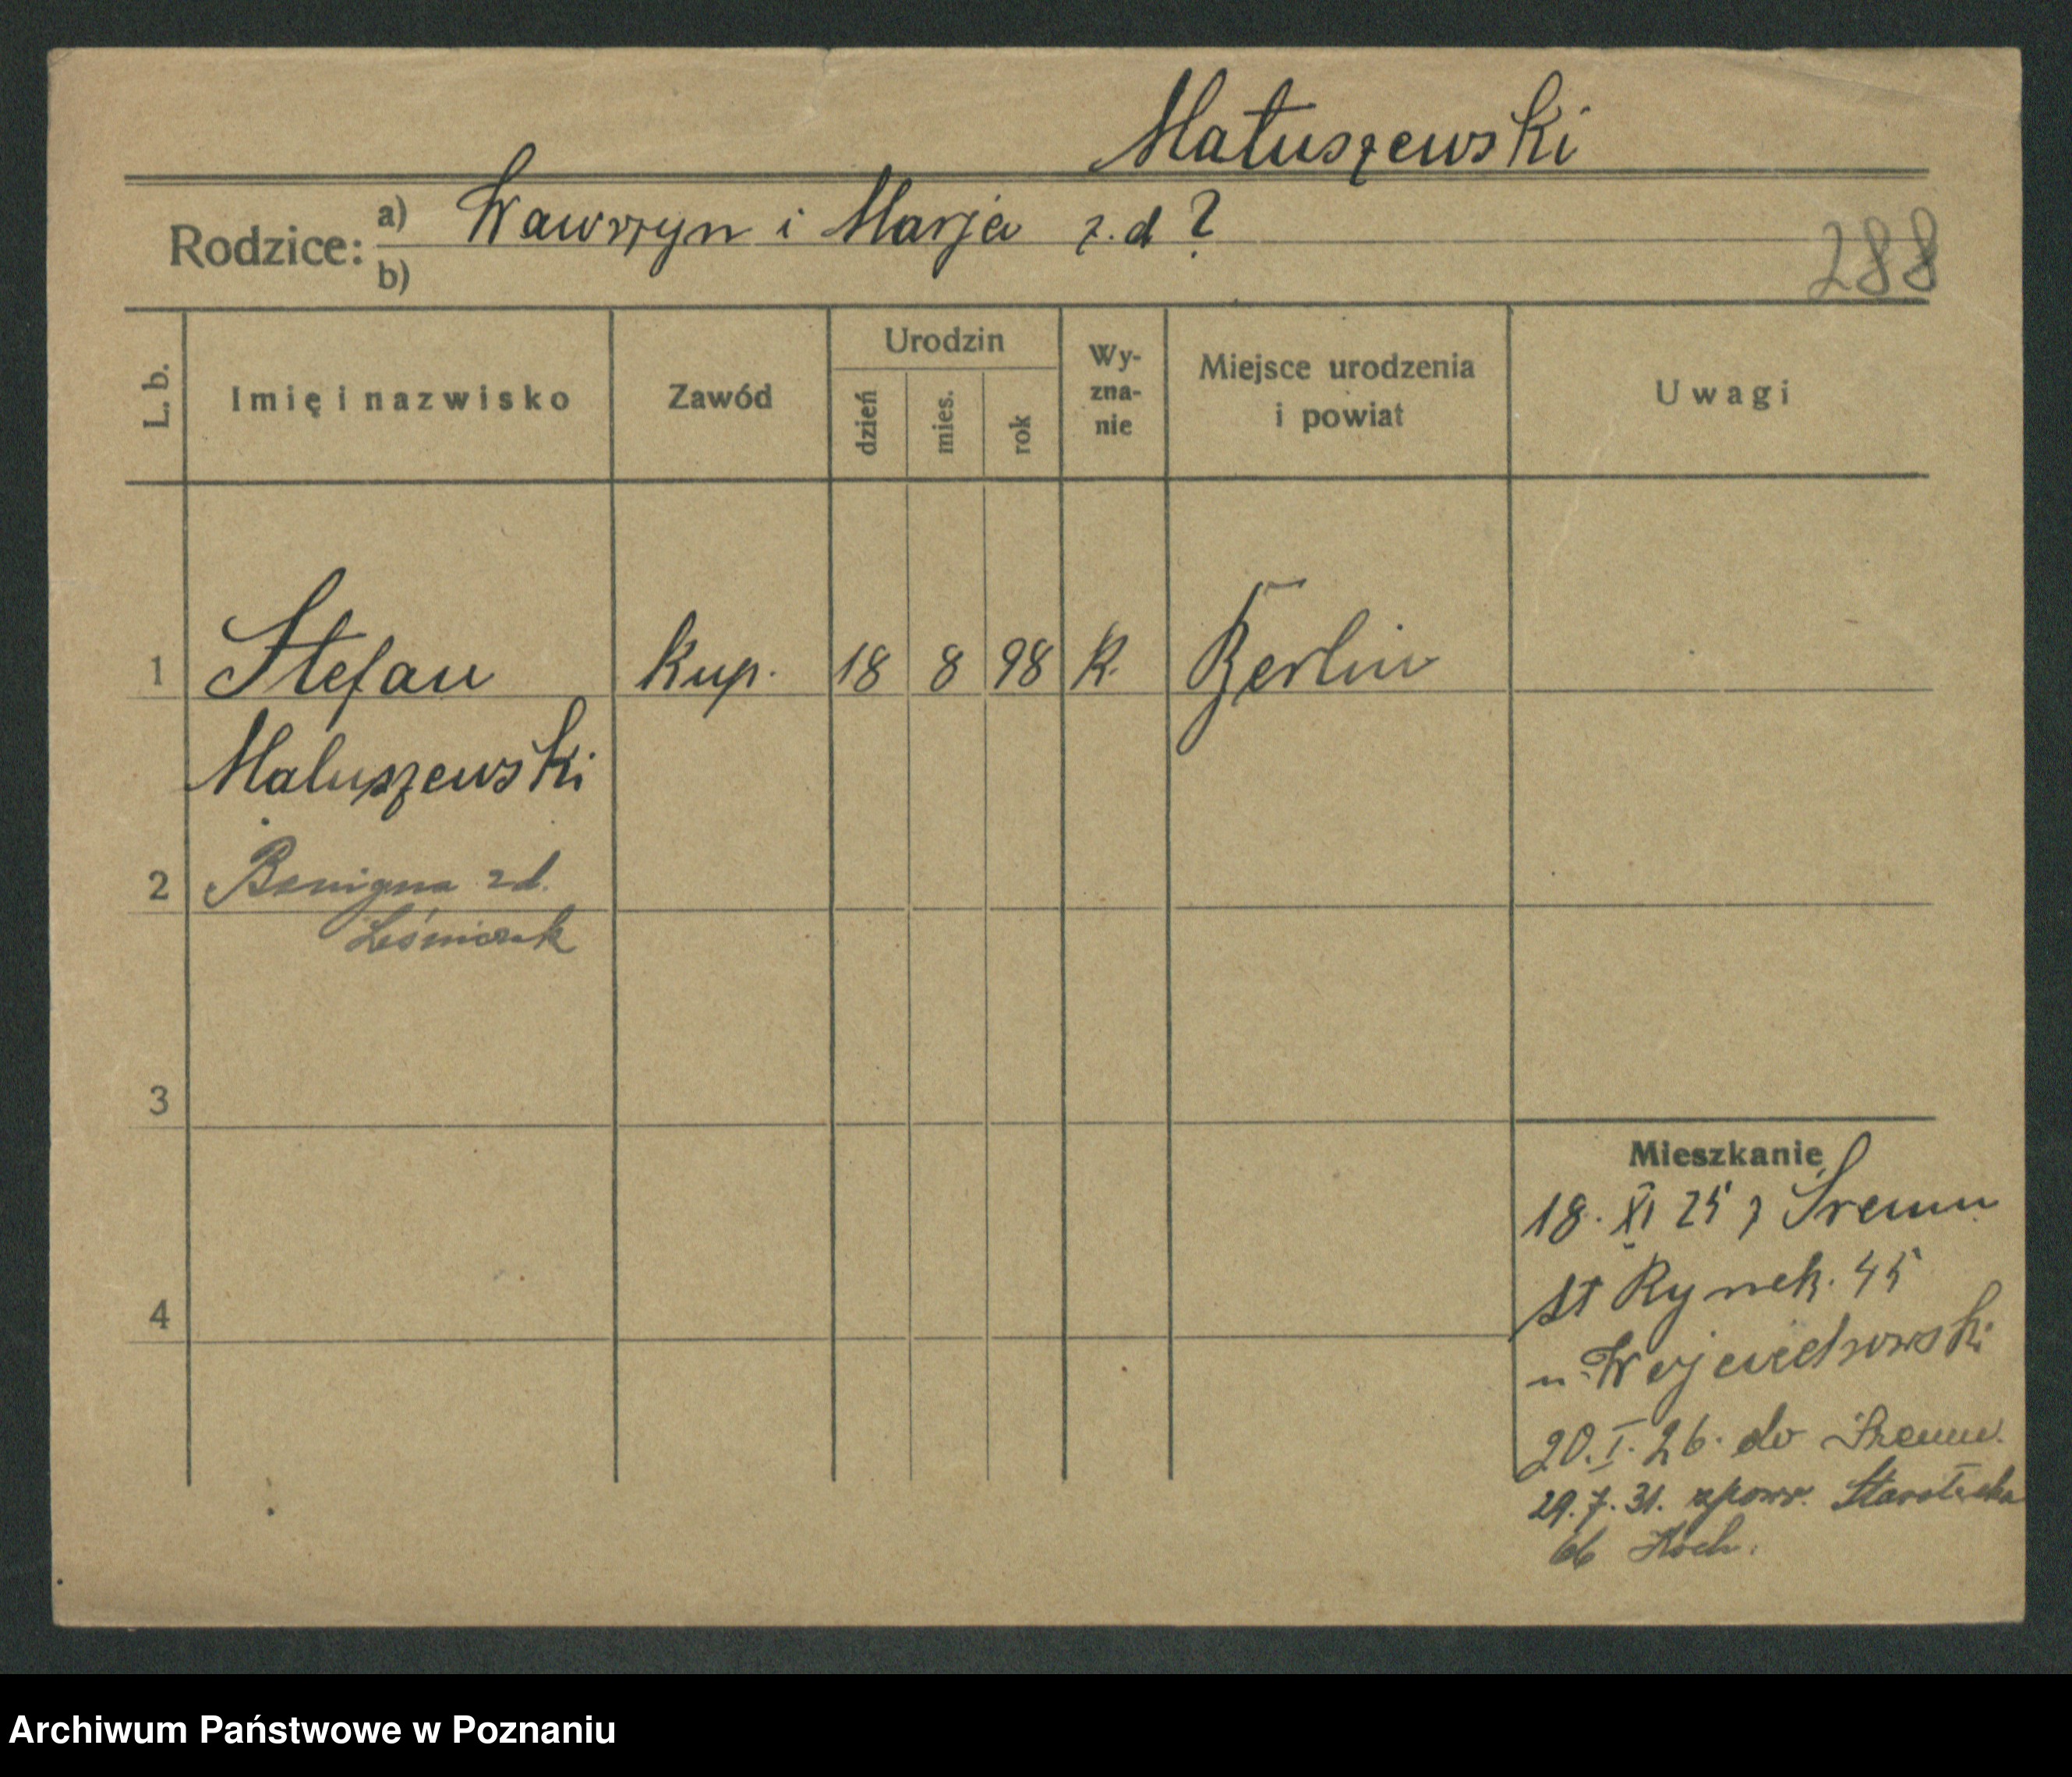 Matuszewski
Rodzice: a) Wawrzyn i Marja z. d ?
b)
288
L. b.
Imię i nazwisko
Zawód
Urodzin
dzień
mies.
rok
Wy-
zna-
nie
Miejsce urodzenia
i powiat
Uwagi
1 Stefan Kup. 18 8 98 K. Berlin
Matuszewski
2 Benigna zd.
Leśniczak
3
4
Mieszkanie
18. XI 25 z Śremu
St Rynek. 45
u Wojciechowski
20. I. 26. do Śremu.
29. 7. 31. zpowr. Starołęcka
Koch.
Archiwum Państwowe w Poznaniu